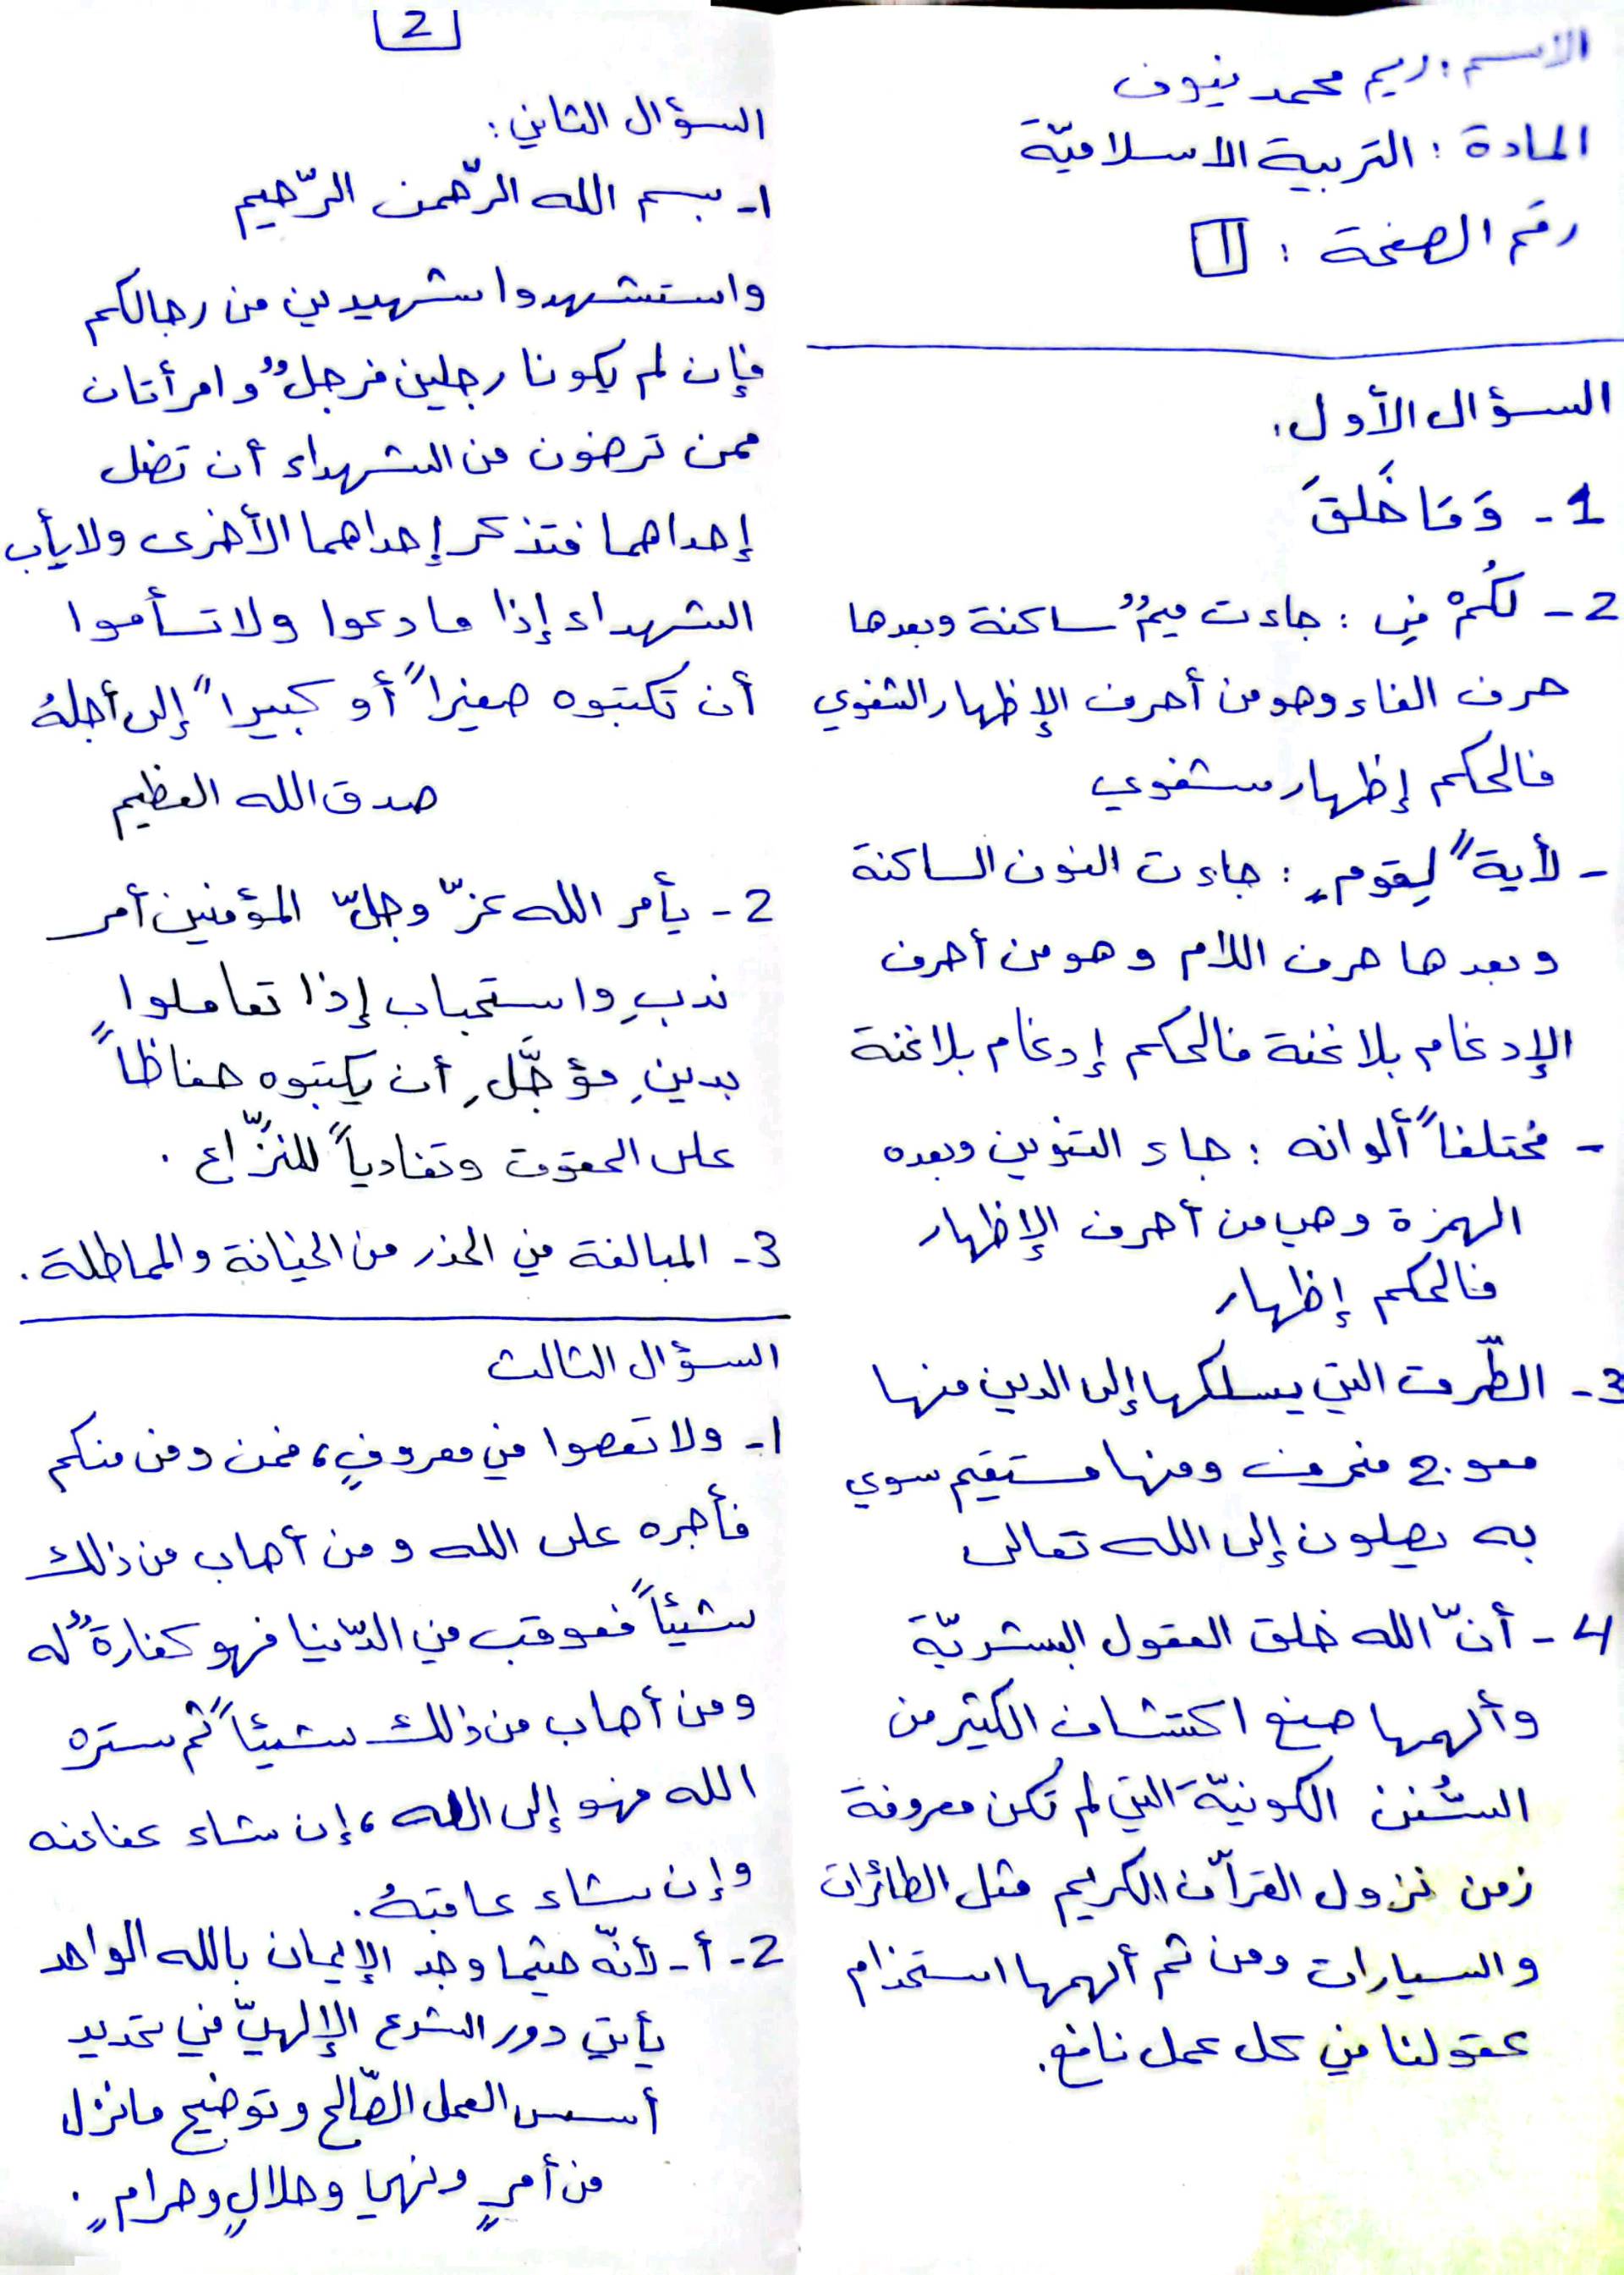 الاسم : ريم محمد نيوف
المادة : التربية الاسلاميّة
رقم الصفحة : 1
السؤال الأول.
1 - وَمَا خَلقَ
2 - لكُمْ في : جاءت ميمٌ ساكنة وبعدها
حرف الفاء وهو من أحرف الإظهار الشفوي
فالحكم إظهار شفوي
- لأيةً لِقومٍ : جاءت النون الساكنة
وبعدها حرف اللام وهو من أحرف
الإدغام بلا غنة فالحكم إدغام بلا غنة
- مُختلفاً ألوانه : جاء التنوين وبعده
الهمزة وهي من أحرف الإظهار
فالحكم إظهار
3 - الطّرق التي يسلكها إلى الدين منها
معوج منحرف ومنها مستقيم سوي
به يصلون إلى الله تعالى
4 - أنّ الله خلق العقول البشريّة
وألهمها صنع اكتشاف الكثير من
السُنن الكونيّة التي لم تكن معروفة
زمن نزول القرآن الكريم مثل الطائرات
والسيارات ومن ثم ألهمها استخذام
عقولنا في كل عمل نافع.
2
السؤال الثاني :
1- بسم الله الرّحمن الرّحيم
واستشهدوا شهيدين من رجالكم
فإن لم يكونا رجلين فرجلٌ و امرأتان
ممن ترضون من الشهداء أن تضل
إحداهما فتذكر إحداهما الأخرى ولا يأب
الشهداء إذا ما دعوا ولا تسأموا
أن تكتبوه صغيراً أو كبيراً إلى أجلهُ
صدق الله العظيم
2 - يأمر الله عزّ وجلّ المؤمنين أمر
ندبٍ واستحباب إذا تعاملوا
بدينٍ مؤجَّلٍ أن يكتبوه حفاظاً
على الحقوق وتفادياً للنزّاع .
3- المبالغة في الحذر من الخيانة والمماطلة .
السؤال الثالث
1- ولا تعصوا في معروفٍ، فمن ومن منكم
فأجره على الله ومن أصاب من ذلك
شيئاً فعوقب في الدّنيا فهو كفارةٌ له
ومن أصاب من ذلك شيئاً ثم ستره
الله فهو إلى الله ، إن شاء عفا عنه
وإن شاء عاقبهُ.
2- أ - لأنّه حيثما وجد الإيمان بالله الواحد
يأتي دور الشرع الإلهيّ في تحديد
أسس العمل الصّالح وتوضيح ما نزل
من أمرٍ ونهيا وحلالٍ وحرامٍ .